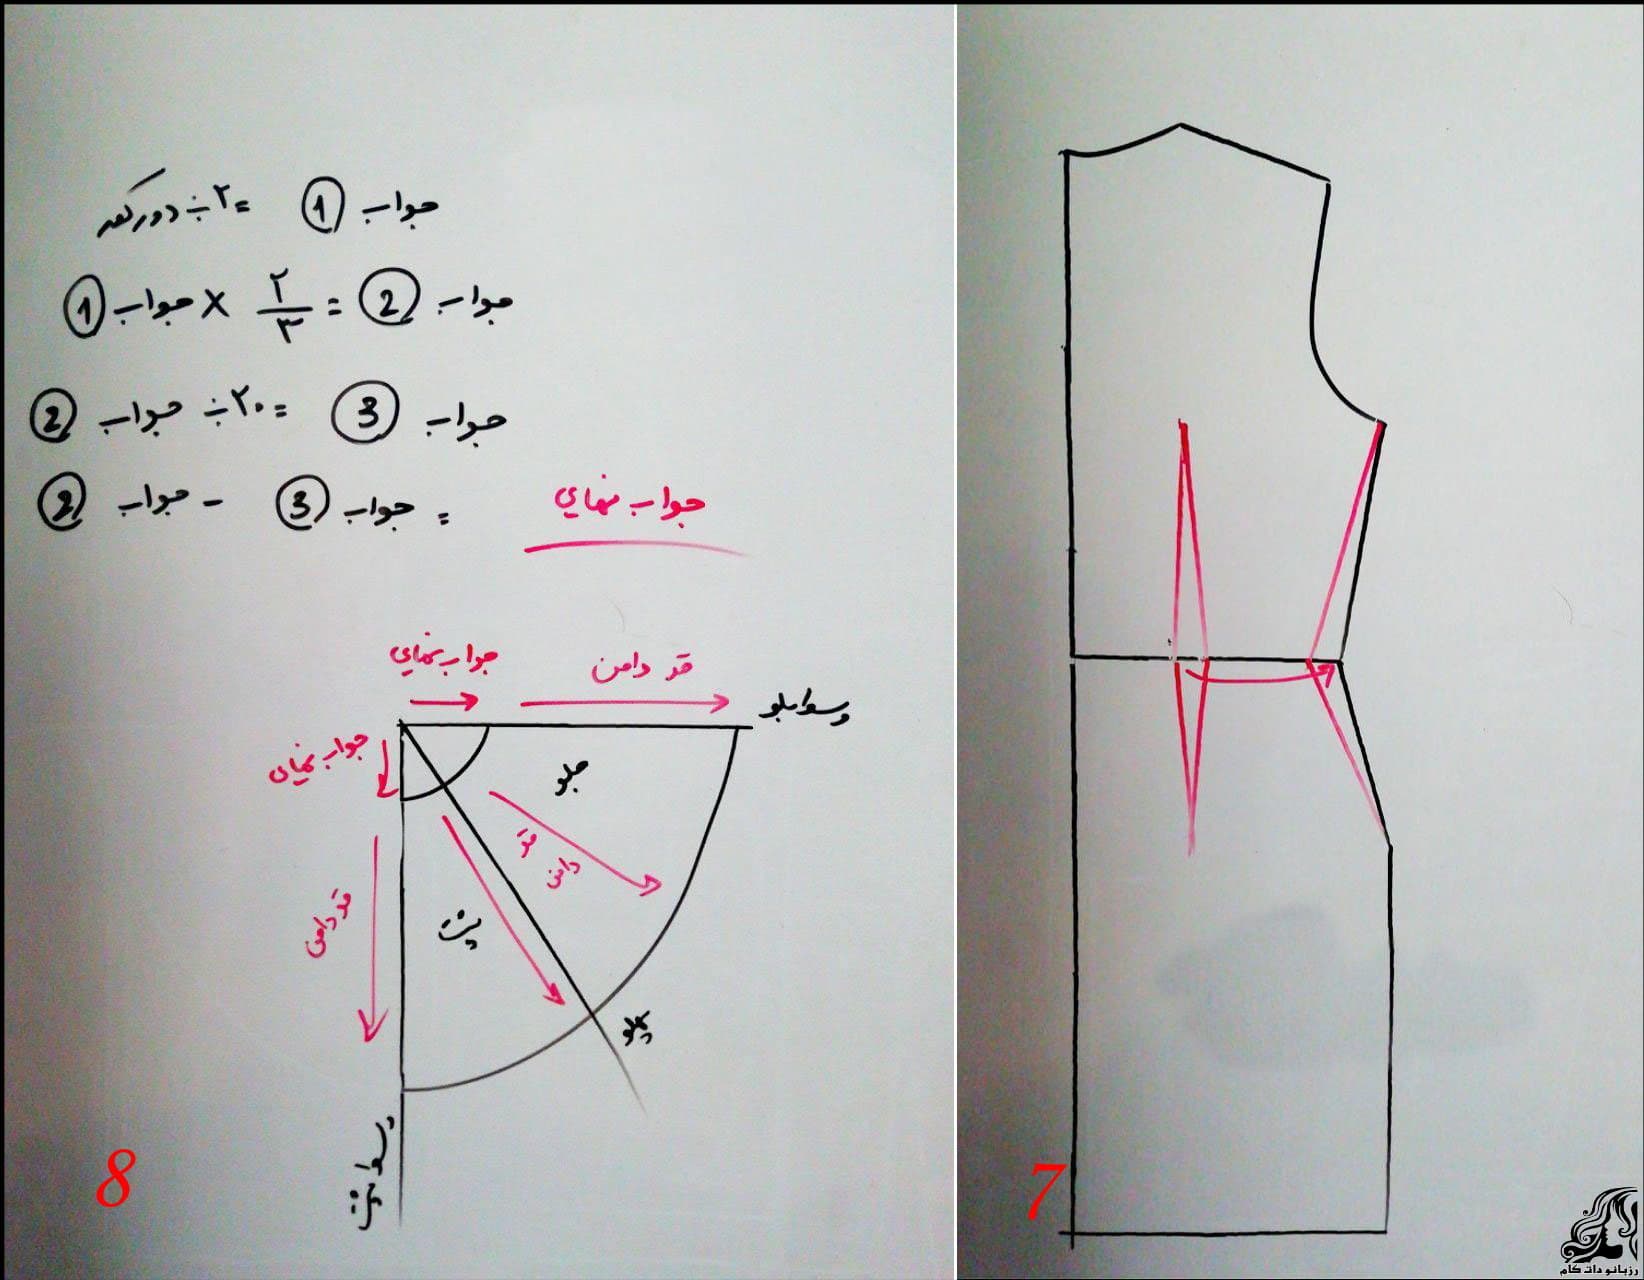 دور کمر ÷ ۲ = جواب 1
جواب 1 × ۲/۳ = جواب 2
جواب 2 ÷ ۲۰ = جواب 3
جواب 2 - جواب 3 = جواب نهایی
جواب نهایی
قد دامن
وسط جلو
جواب نهایی
جلو
قد دامن
قد دامن
پشت
پهلو
وسط پشت
8
7
رزبانو دات کام